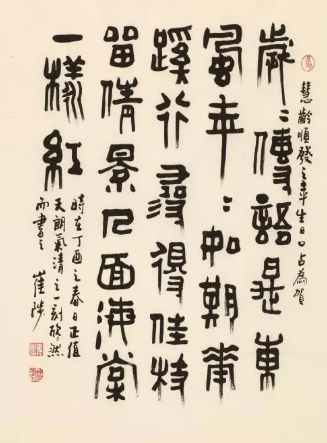 慧齡順發之華生日口占為賀
歲〻傳語是東
風年〻如期華
蹊行尋得佳枝
留倩景人面海棠
一樣紅
時在丁酉之春日正值
天朗氣清之一刻欣然
而書之 崔陟